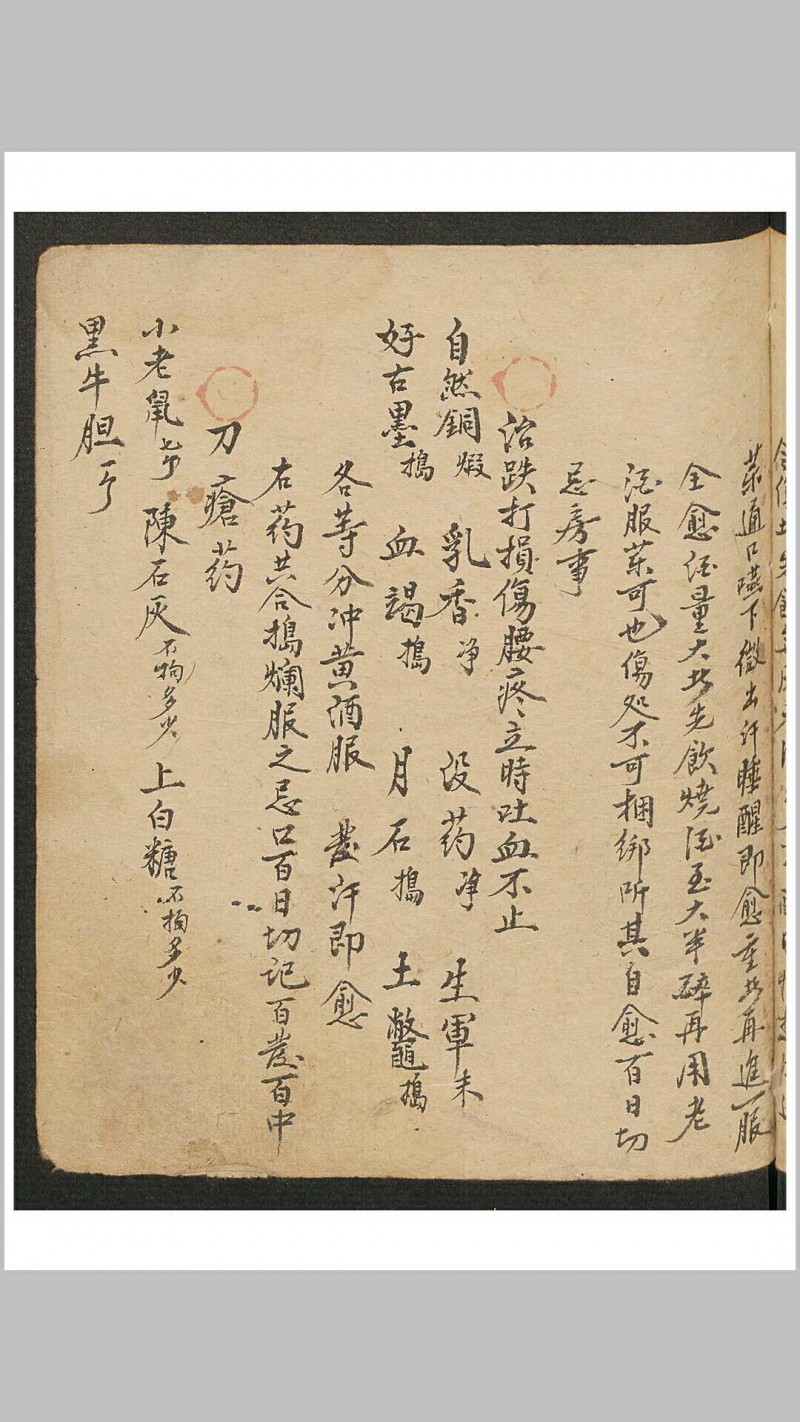 药通口嚥下微出汗睡醒即愈重此再進一服
全愈但量大此先飲燒酒至大半碎再用老
酒服药可也傷処不可捆綁所其自愈百日切
忌房事
治跌打損傷腰疼立時吐血不止
自然銅煅 乳香净 没药净 生軍末
好古墨搗 血竭搗 月石搗 土鱉搗
各等分冲黄酒服 發汗即愈
右药共合搗爛服之忌口百日切記百發百中
刀瘡药
小老鼠 陳石灰不拘多少 上白糖不拘多少
黑牛胆一个